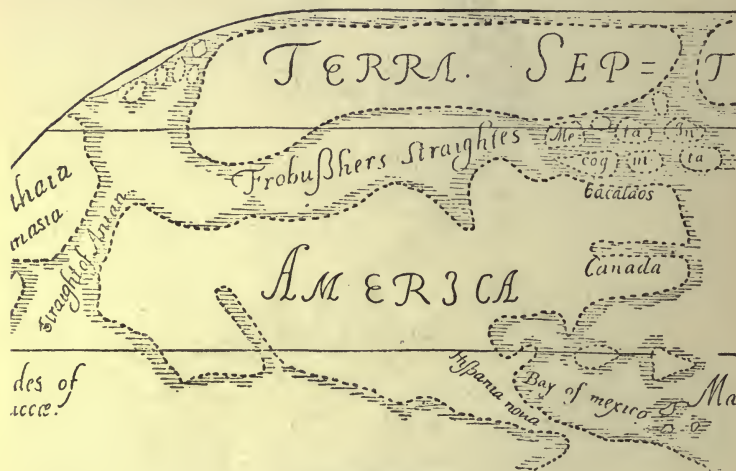 TERRA. SEP= T
Frobußhers straightes
Me ta In
cog ni ta
Bacalaos
thaia
masia
straight of Anian
AMERICA
Canada
des of
uccæ.
Hispania nova
Bay of mexico
Ma